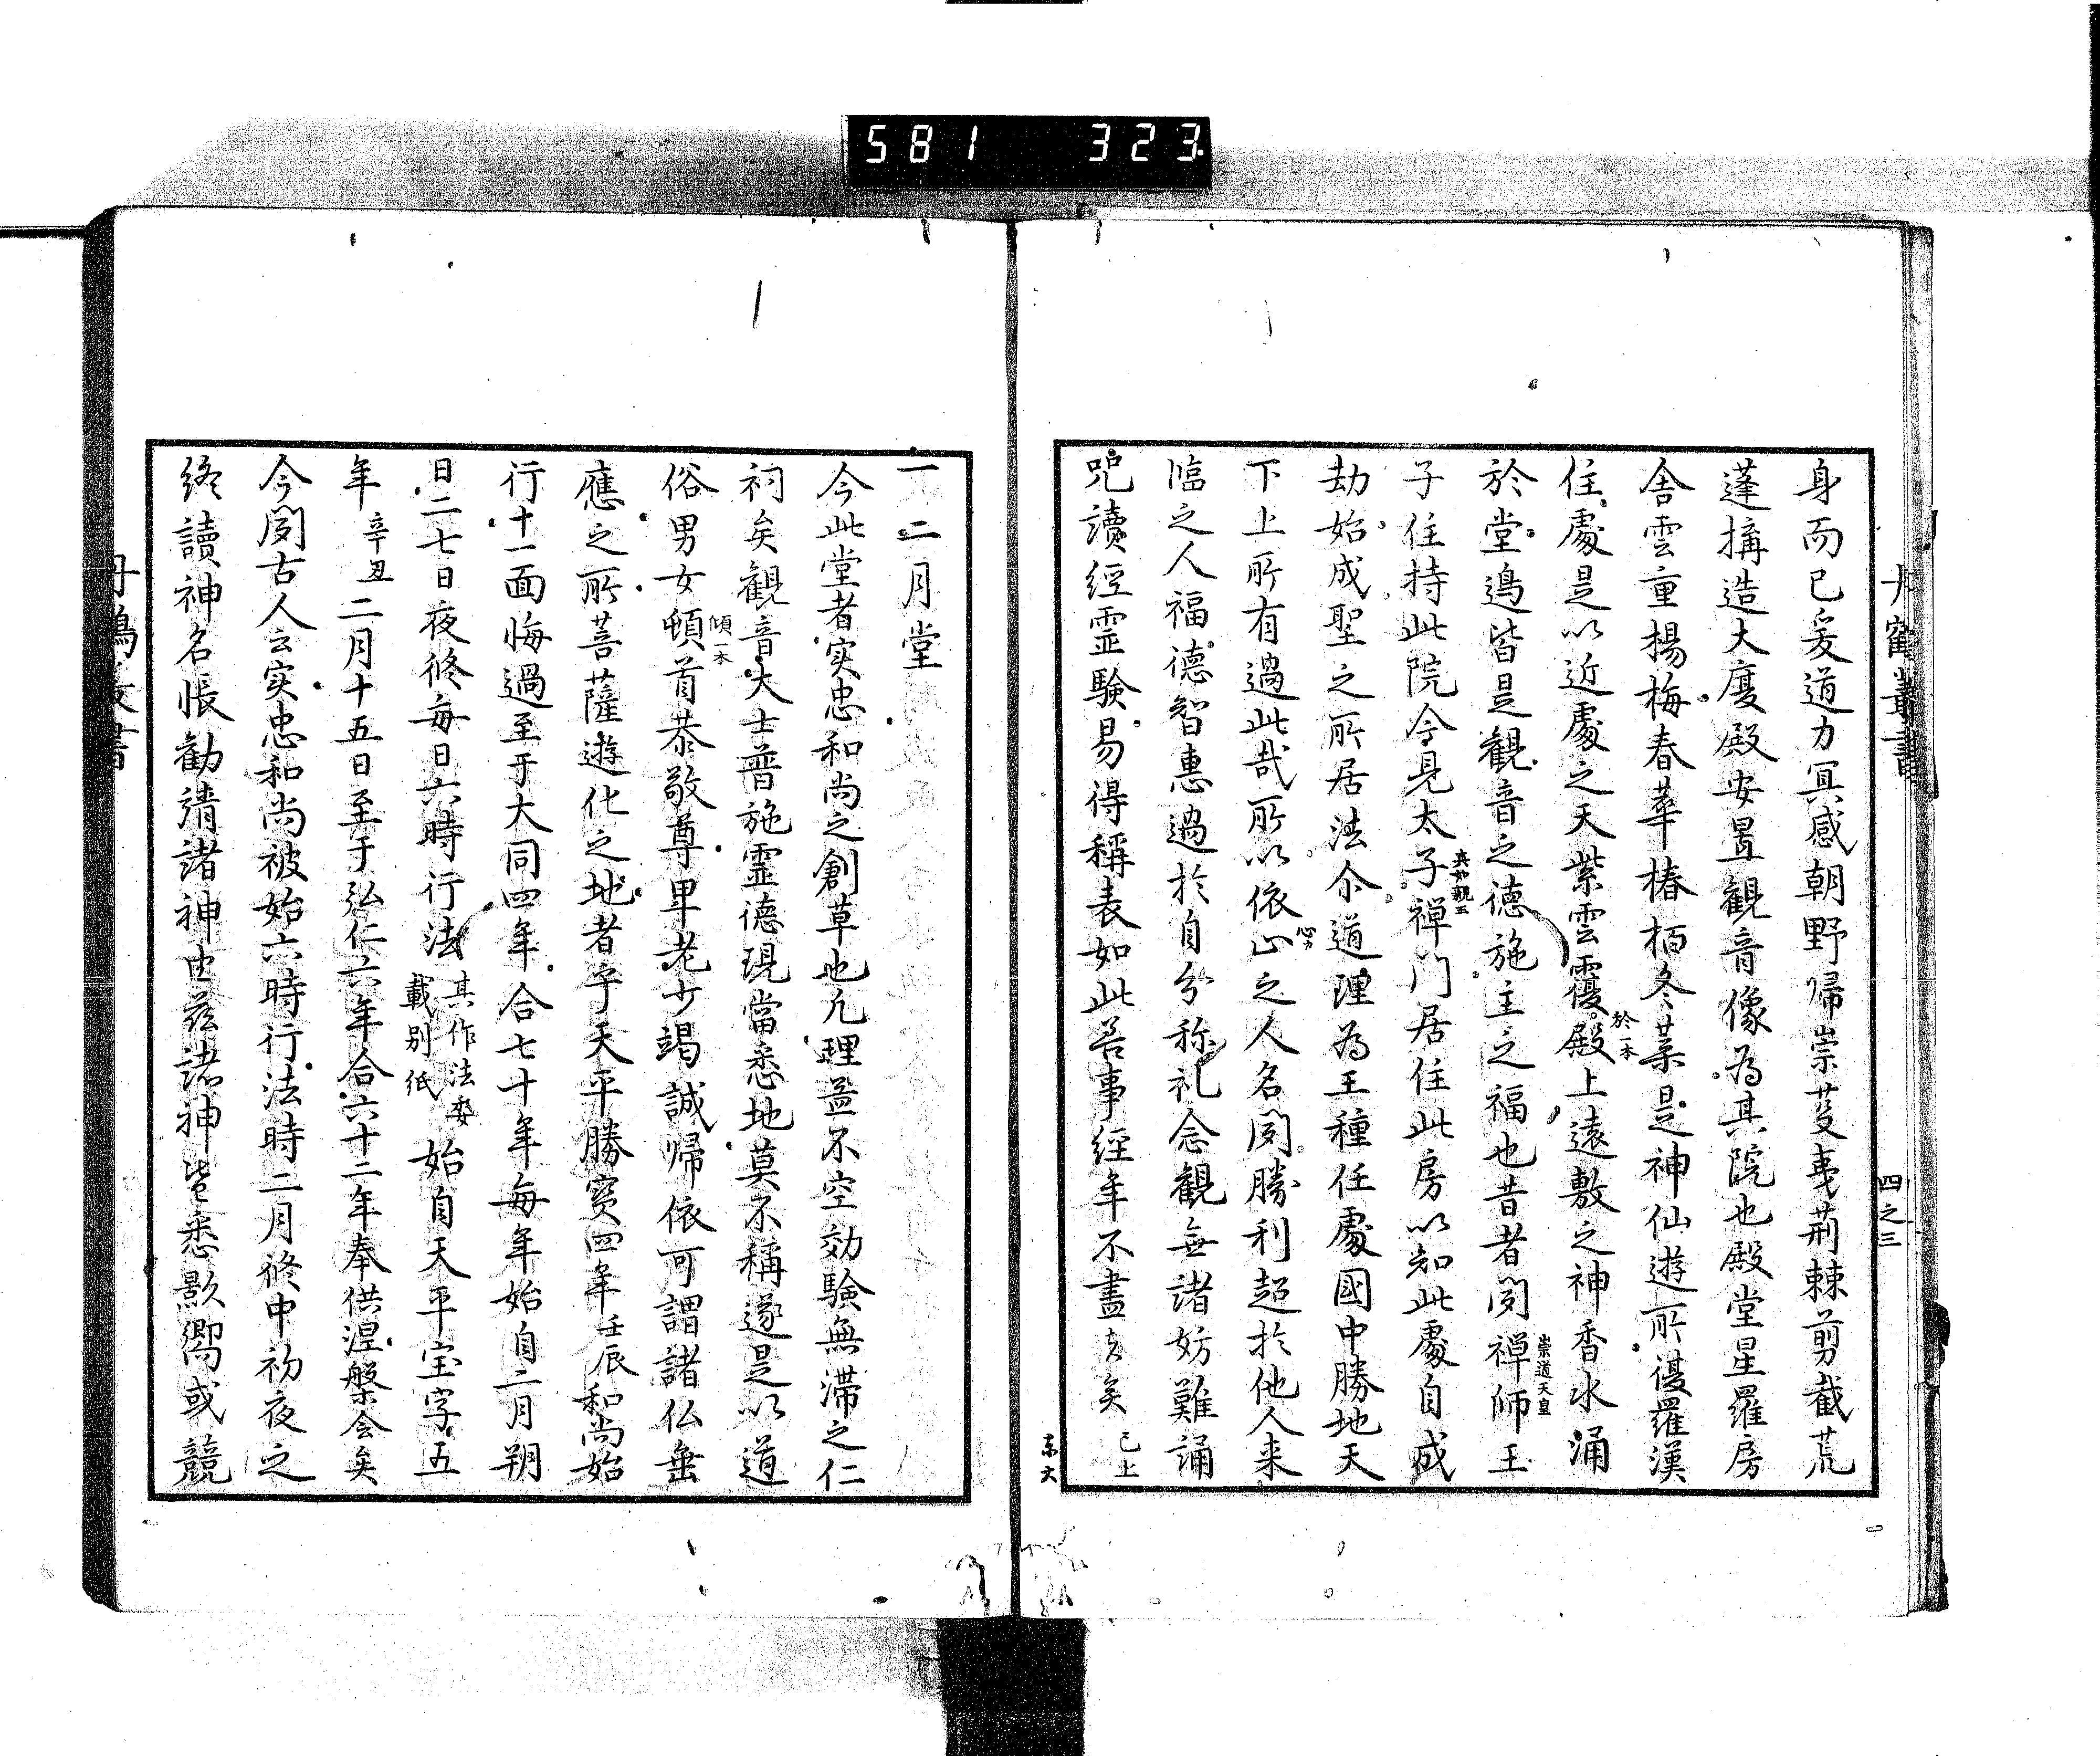 581 323
丹鶴叢書
四之三
身而已爰道力冥感朝野歸崇芟夷荊棘剪截荒
蓬搆造大廈殿安置觀音像為其院也殿堂星羅房
舍雲重楊梅春華椿栢冬菜是神仙遊所優羅漢
住處是以近處之天紫雲覆殿上遠敷之神香水涌
於一本
於堂邊皆是觀音之德施主之福也昔者聞禪師王
崇道天皇
子住持此院今見太子禪門居住此房以知此處自成
真如親王
劫始成聖之所居法尒道理為王種任處國中勝地天
下上所有過此哉所以依止之人名聞勝利超於他人来
臨之人福德智惠過於自分称礼念觀無諸妨難誦
咒讀經霊驗易得稱表如此善事經年不盡矣已上
東大
一二月堂
今此堂者実忠和尚之創草也凡理盖不空効驗無滞之仁
祠矣觀音大士普施霊德現當悉地莫不稱遂是以道
俗男女頓首恭敬尊卑老少竭誠歸依可謂諸仏垂
傾一本
應之所菩薩遊化之地者乎天平勝寶四年壬辰和尚始
行十一面悔過至于大同四年合七十年每年始自二月朔
日二七日夜修每日六時行法其作法委載別紙始自天平宝字五
年辛丑二月十五日至于弘仁六年合六十二年奉供涅槃会矣
今聞古人云実忠和尚被始六時行法時二月修中初夜之
終讀神名帳勧請諸神由茲諸神皆悉影嚮或競